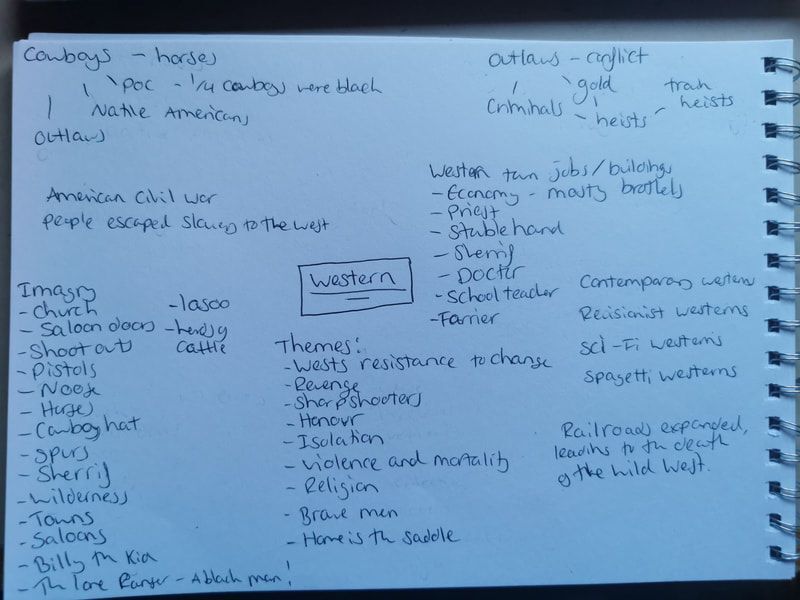 Cowboys - horses
POC - 1/4 cowboys were black
Native Americans
outlaws
outlaws - conflict
gold
train heists
Criminals
heists
American Civil war
people escaped slavery to the west
Western town jobs/buildings
- Economy - mostly brothels
- Priest
- Stable hand
- Sherrif
- Doctor
- School teacher
- Farrier
Western
Imagry
- Church
- Saloon doors
- Shoot outs
- Pistols
- Noose
- Horses
- Cowboy hat
- Spurs
- Sherrif
- Wilderness
- Towns
- Saloons
- Billy the Kid
- The lone Ranger - A black man!
- lasoo
- herdsy
cattle
Themes:
- Wests resistance to change
- Revenge
- Sharpshooters
- Honour
- Isolation
- Violence and mortality
- Religion
- Brave men
- Home is the saddle
Contemporary westerns
Revisionist westerns
Sci-Fi westerns
Spagetti westerns
Railroads expanded,
leading to the death
of the wild west.